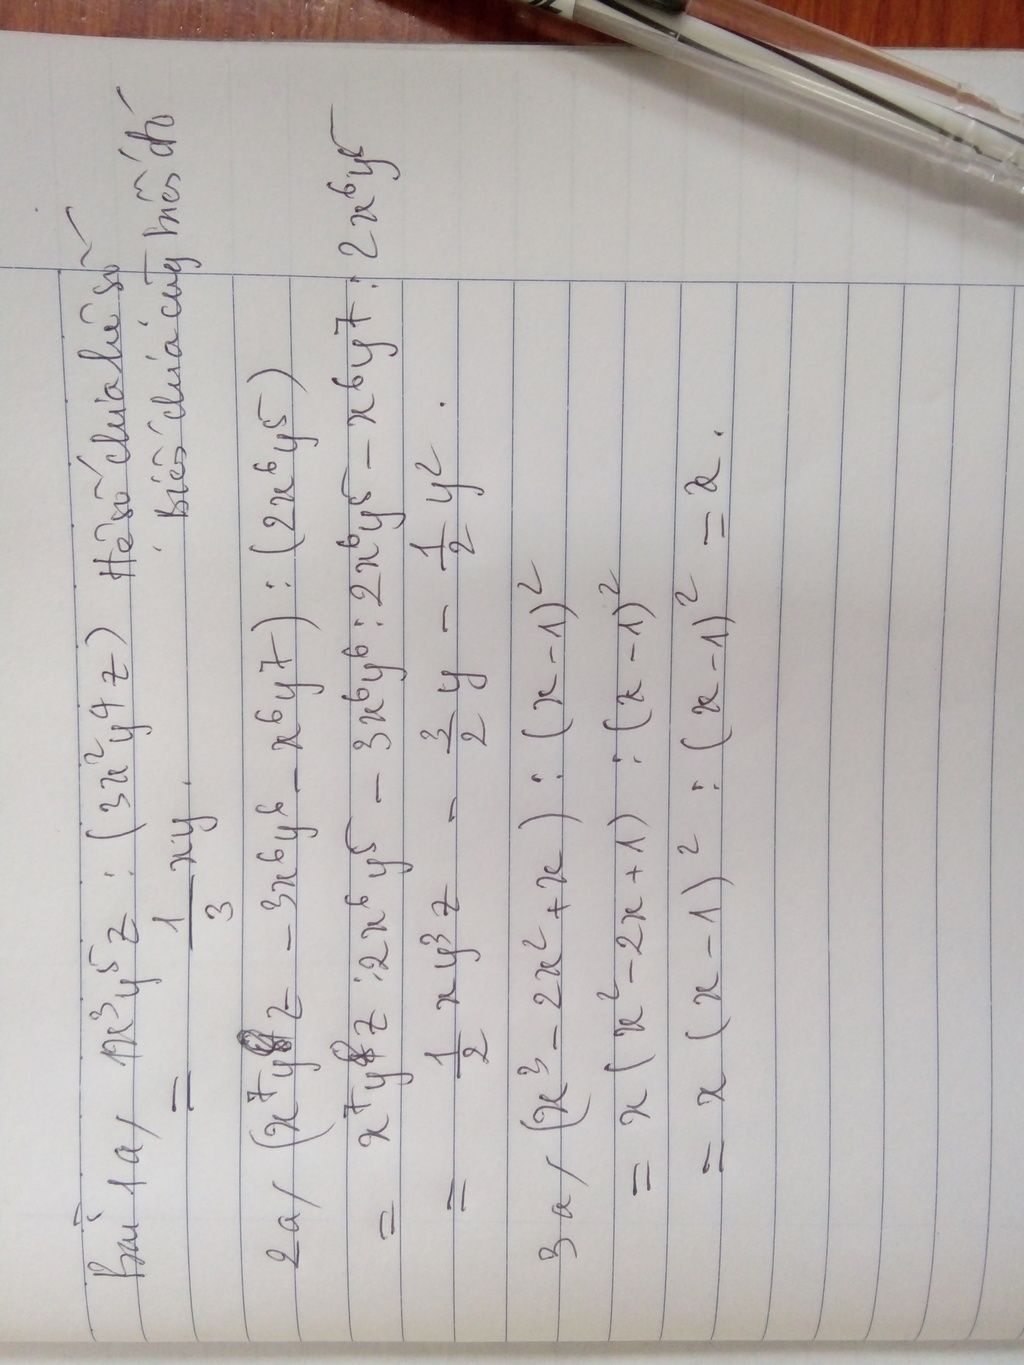 Bài 1a/ 1x³y⁵z : (3x²y⁴z) Hệ số chia hệ số
= 1/3 xy. Biến chia cùng biến đó
2a/ (x⁷y⁸z - 3x⁶y⁶ - x⁶y⁷) : (2x⁶y⁵)
= x⁷y⁸z : 2x⁶y⁵ - 3x⁶y⁶ : 2x⁶y⁵ - x⁶y⁷ : 2x⁶y⁵
= 1/2 xy³z - 3/2 y - 1/2 y².
3a/ (x³ - 2x² + x) : (x - 1)²
= x (x² - 2x + 1) : (x - 1)²
= x (x - 1)² : (x - 1)² = x.